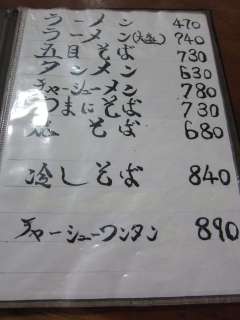 ラーメン 470
ラーメン(大盛) 740
五目そば 730
タンメン 630
チャーシューメン 780
うまにそば 730
そば 680
冷しそば 840
チャーシューワンタン 890